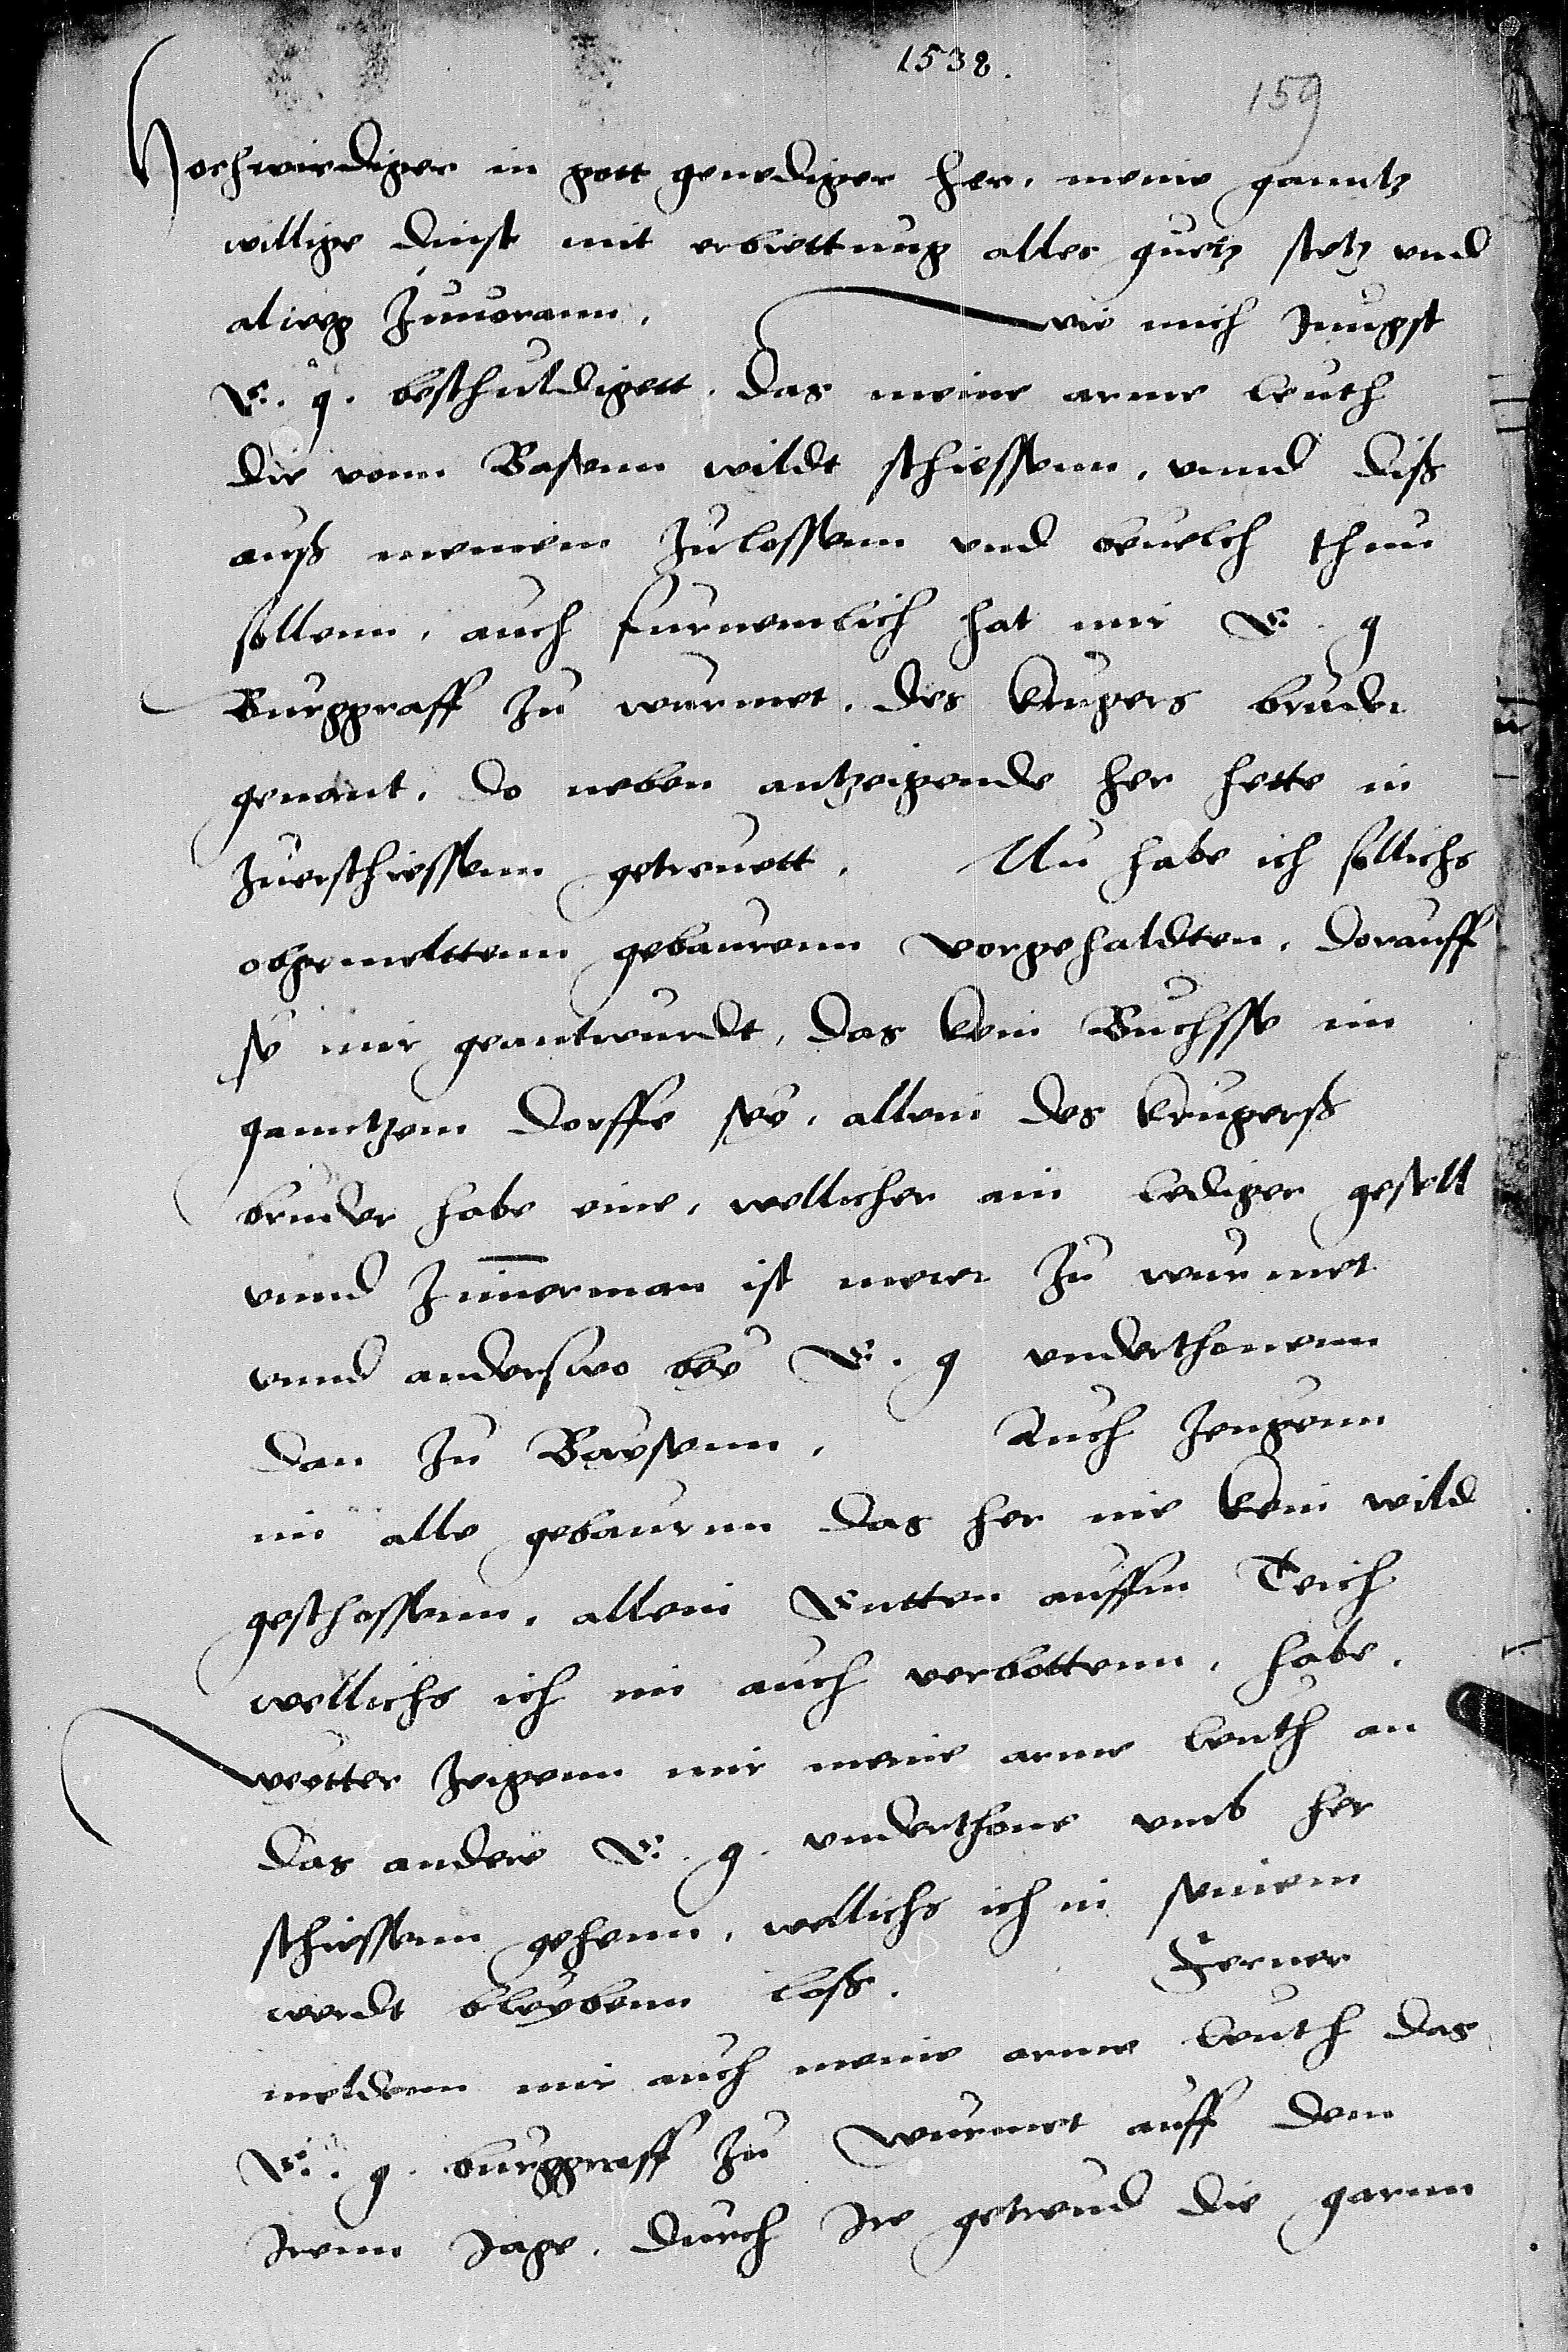 1538.
159
Hochwirdiger in gott genediger her, meine ganntz
willige dinst mit erbiettung alles guetz stetz vnd
alweg zuuorann. wie mich Jungst
E. g. beschuldigett. das meine arme leuth
die vonn Basenn wildt schiessenn, vnnd diss
auss meinem zulossenn vnd beuelch thun
sollenn, auch furnemlich hat mir E. g
Burggraff zu wurmet. des krugers bruder
genant. do neben antzeigende her hette in
zuerschiessenn getrewett. Nu habe ich sollichs
obgemeltenn gebaurenn vorgehaldten, dorauff
sy mir geantwurdt, das kein Buchsse im
ganntzem dorffe sey, allein des krugerss
bruder habe eine, wellicher ain lediger gesell
vnnd Zimerman ist meer zu wurmet
vnnd anderswo bey E. g vnderthonenn
dan zu Baysenn. Auch zeugenn
im alle gebaurnn das her nie kein wild
geschossenn, allein Entten auffm Teich
wellichs ich im auch verbottenn, habe.
weytter zeigenn mir meine arme leuth an
das andere E. g. vnderthone vmb her
schiessenn gehenn, wellichs ich in seinem
werdt bleybenn loss. Ferner
meldenn mir auch meine arme leuth das
E. g. burggraff zu wurmet auff dem
Irenn Jage. durch Ire getreud die garnn